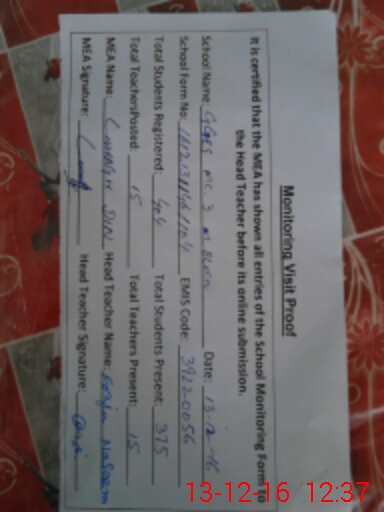 Monitoring Visit Proof
It is certified that the MEA has shown all entries of the School Monitoring Form to
the Head Teacher before its online submission.
School Name: GGPS MC 3 Date: 13-12-16
School Form No: EMIS Code: 39220056
Total Students Registered: 404 Total Students Present: 375
Total TeachersPosted: 15 Total Teachers Present: 15
MEA Name: DIN Head Teacher Name: Nasreem
MEA Signature: Head Teacher Signature:
13-12-16 12:37